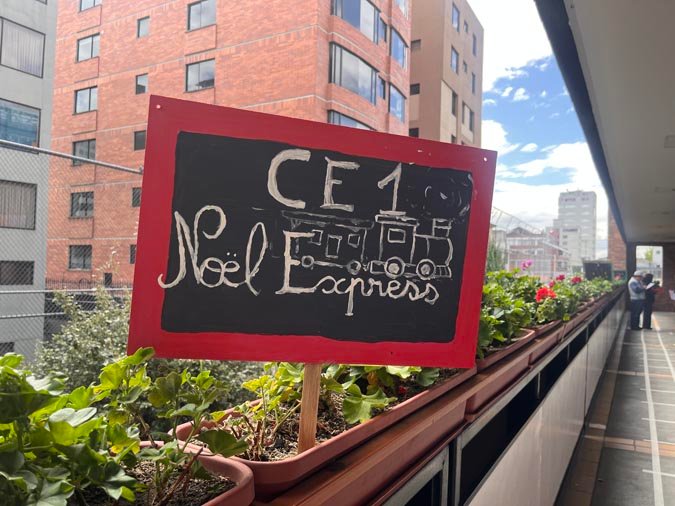 CE1
Noël Express